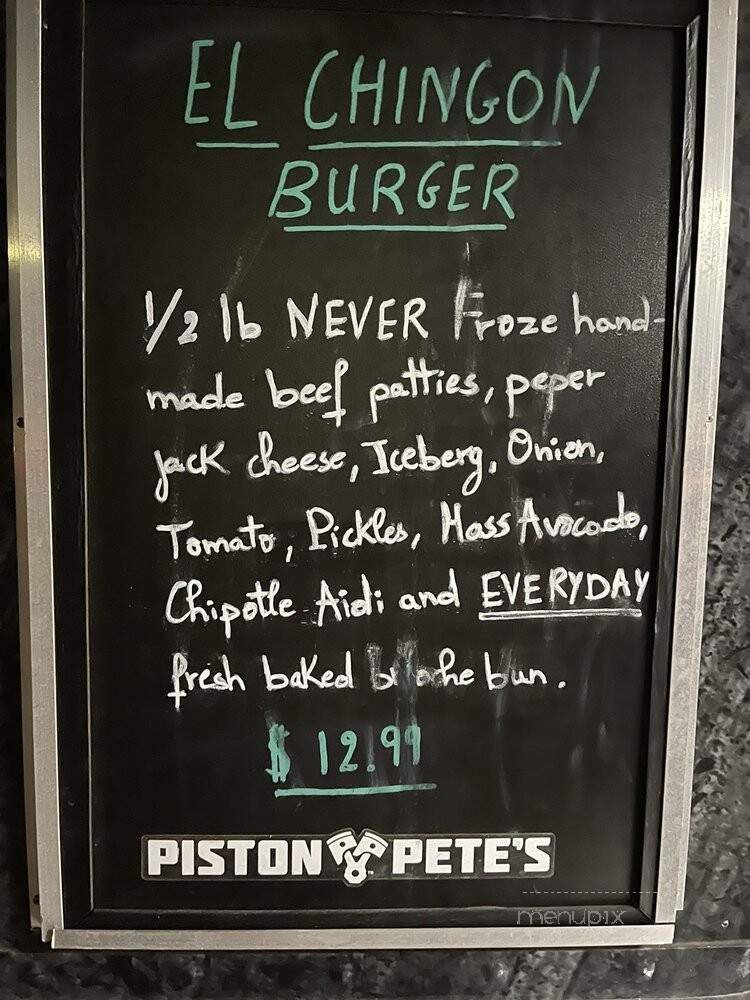 EL CHINGON
BURGER
1/2 lb NEVER Froze hand-
made beef patties, peper
jack cheese, Iceberg, Onion,
Tomato, Pickles, Hass Avocado,
Chipotle Aioli and EVERYDAY
fresh baked bun.
$ 12.99
PISTON PETE'S
menupix